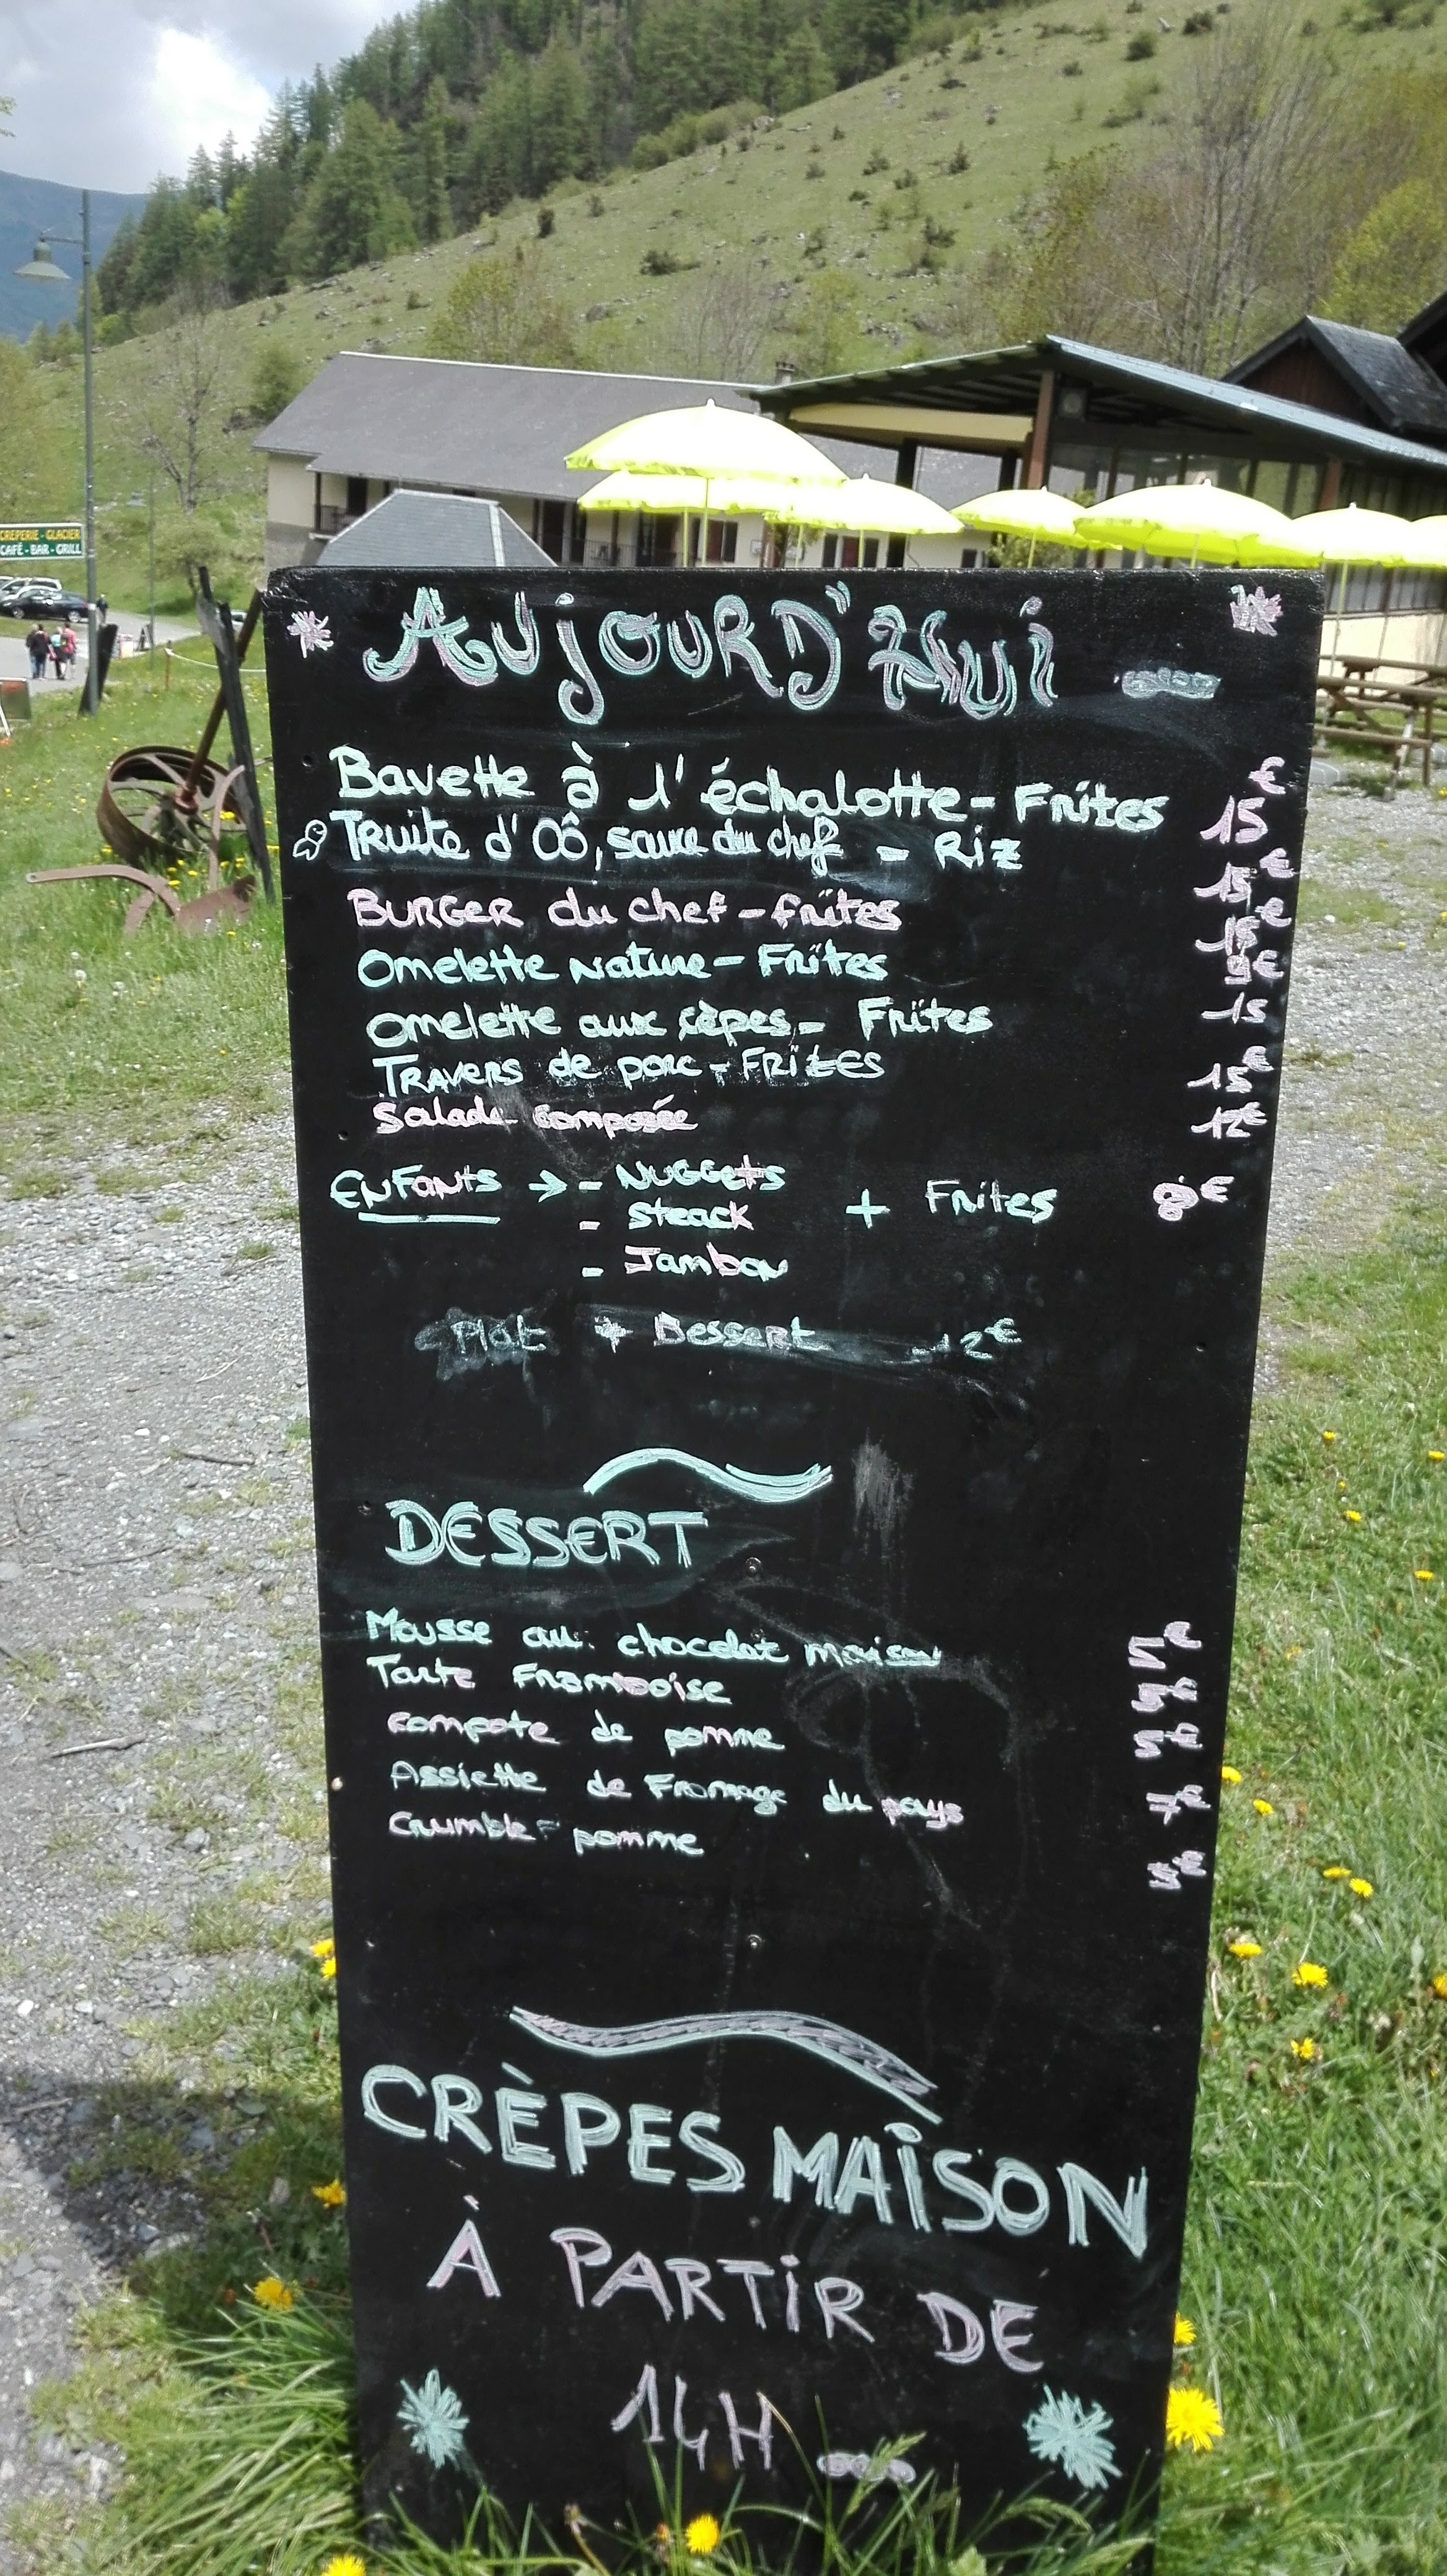 CREPERIE - GLACIER
CAFÉ - BAR - GRILL
AUJOURD'HUI ....
Bavette à l'échalotte - Frites 15€
Truite d'Oô, sauce du chef - Riz 15€
BURGER du chef - frites 15€
Omelette Nature - Frites 9€
Omelette aux cèpes - Frites 15
TRAVERS de porc - FRITES 15€
Salade composée 12€
ENFANTS → - NUGGETS + Frites 8€
- Steack
- Jambon
Plat + Dessert 12€
DESSERT
Mousse au chocolat maison 5€
Tarte Framboise 5€
Compote de pomme 5€
Assiette de Fromage du pays 7€
Crumble pomme 5€
CRÈPES MAISON
À PARTIR DE
14H ...